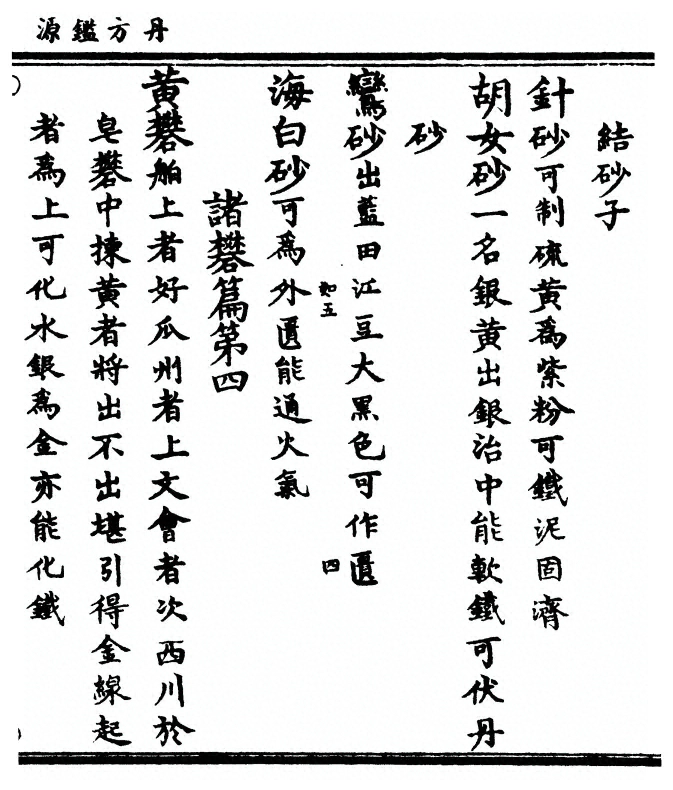 丹方鑑源
結砂子
針砂可制硫黃爲紫粉可鐵泥固濟
胡女砂一名銀黃出銀治中能軟鐵可伏丹
砂
鸞砂出藍田江豆大黑色可作匱
如五
四
海白砂可爲外匱能通火氣
諸礬篇第四
黃礬舶上者好瓜州者上文會者次西川於
皂礬中揀黃者將出不出堪引得金線起
者爲上可化水銀爲金亦能化鐵